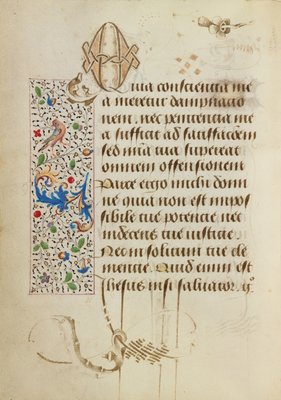 Quia conscientia me
a meretur dampnatio
nem. nec penitentia me
a sufficit ad satisfactionem
sed mia tua superat
omnem offensionem
Parce ergo michi domi
ne quia non est impos
sibile tue potentie nec
indecens tue iustitie
Nec insolitum tue cle
mentie. Quid enim est
ihesus nisi saluator.